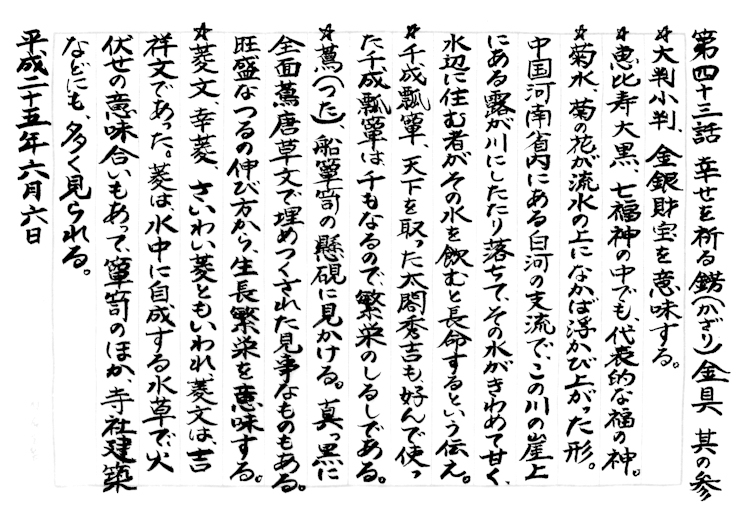 第四十三話 幸せを祈る錺(かざり)金具 其の参
☆大判小判、金銀財宝を意味する。
☆恵比寿大黒、七福神の中でも、代表的な福の神。
☆菊水、菊の花が流水の上になかば浮かび上がった形。
中国河南省内にある白河の支流で、この川の崖上
にある露が川にしたたり落ちて、その水がきわめて甘く、
水辺に住む者がその水を飲むと長命するという伝え。
☆千成瓢箪、天下を取った太閤秀吉も好んで使っ
た千成瓢箪は千もなるので、繁栄のしるしである。
☆蔦(つた)、船箪笥の懸硯に見かける。真っ黒に
全面蔦唐草文で埋めつくされた見事なものもある。
旺盛なつるの伸び方から、生長繁栄を意味する。
☆菱文、幸菱、さいわい菱ともいわれ菱文は、吉
祥文であった。菱は、水中に自成する水草で、火
伏せの意味合いもあって、箪笥のほか、寺社建築
などにも、多く見られる。
平成二十五年六月六日